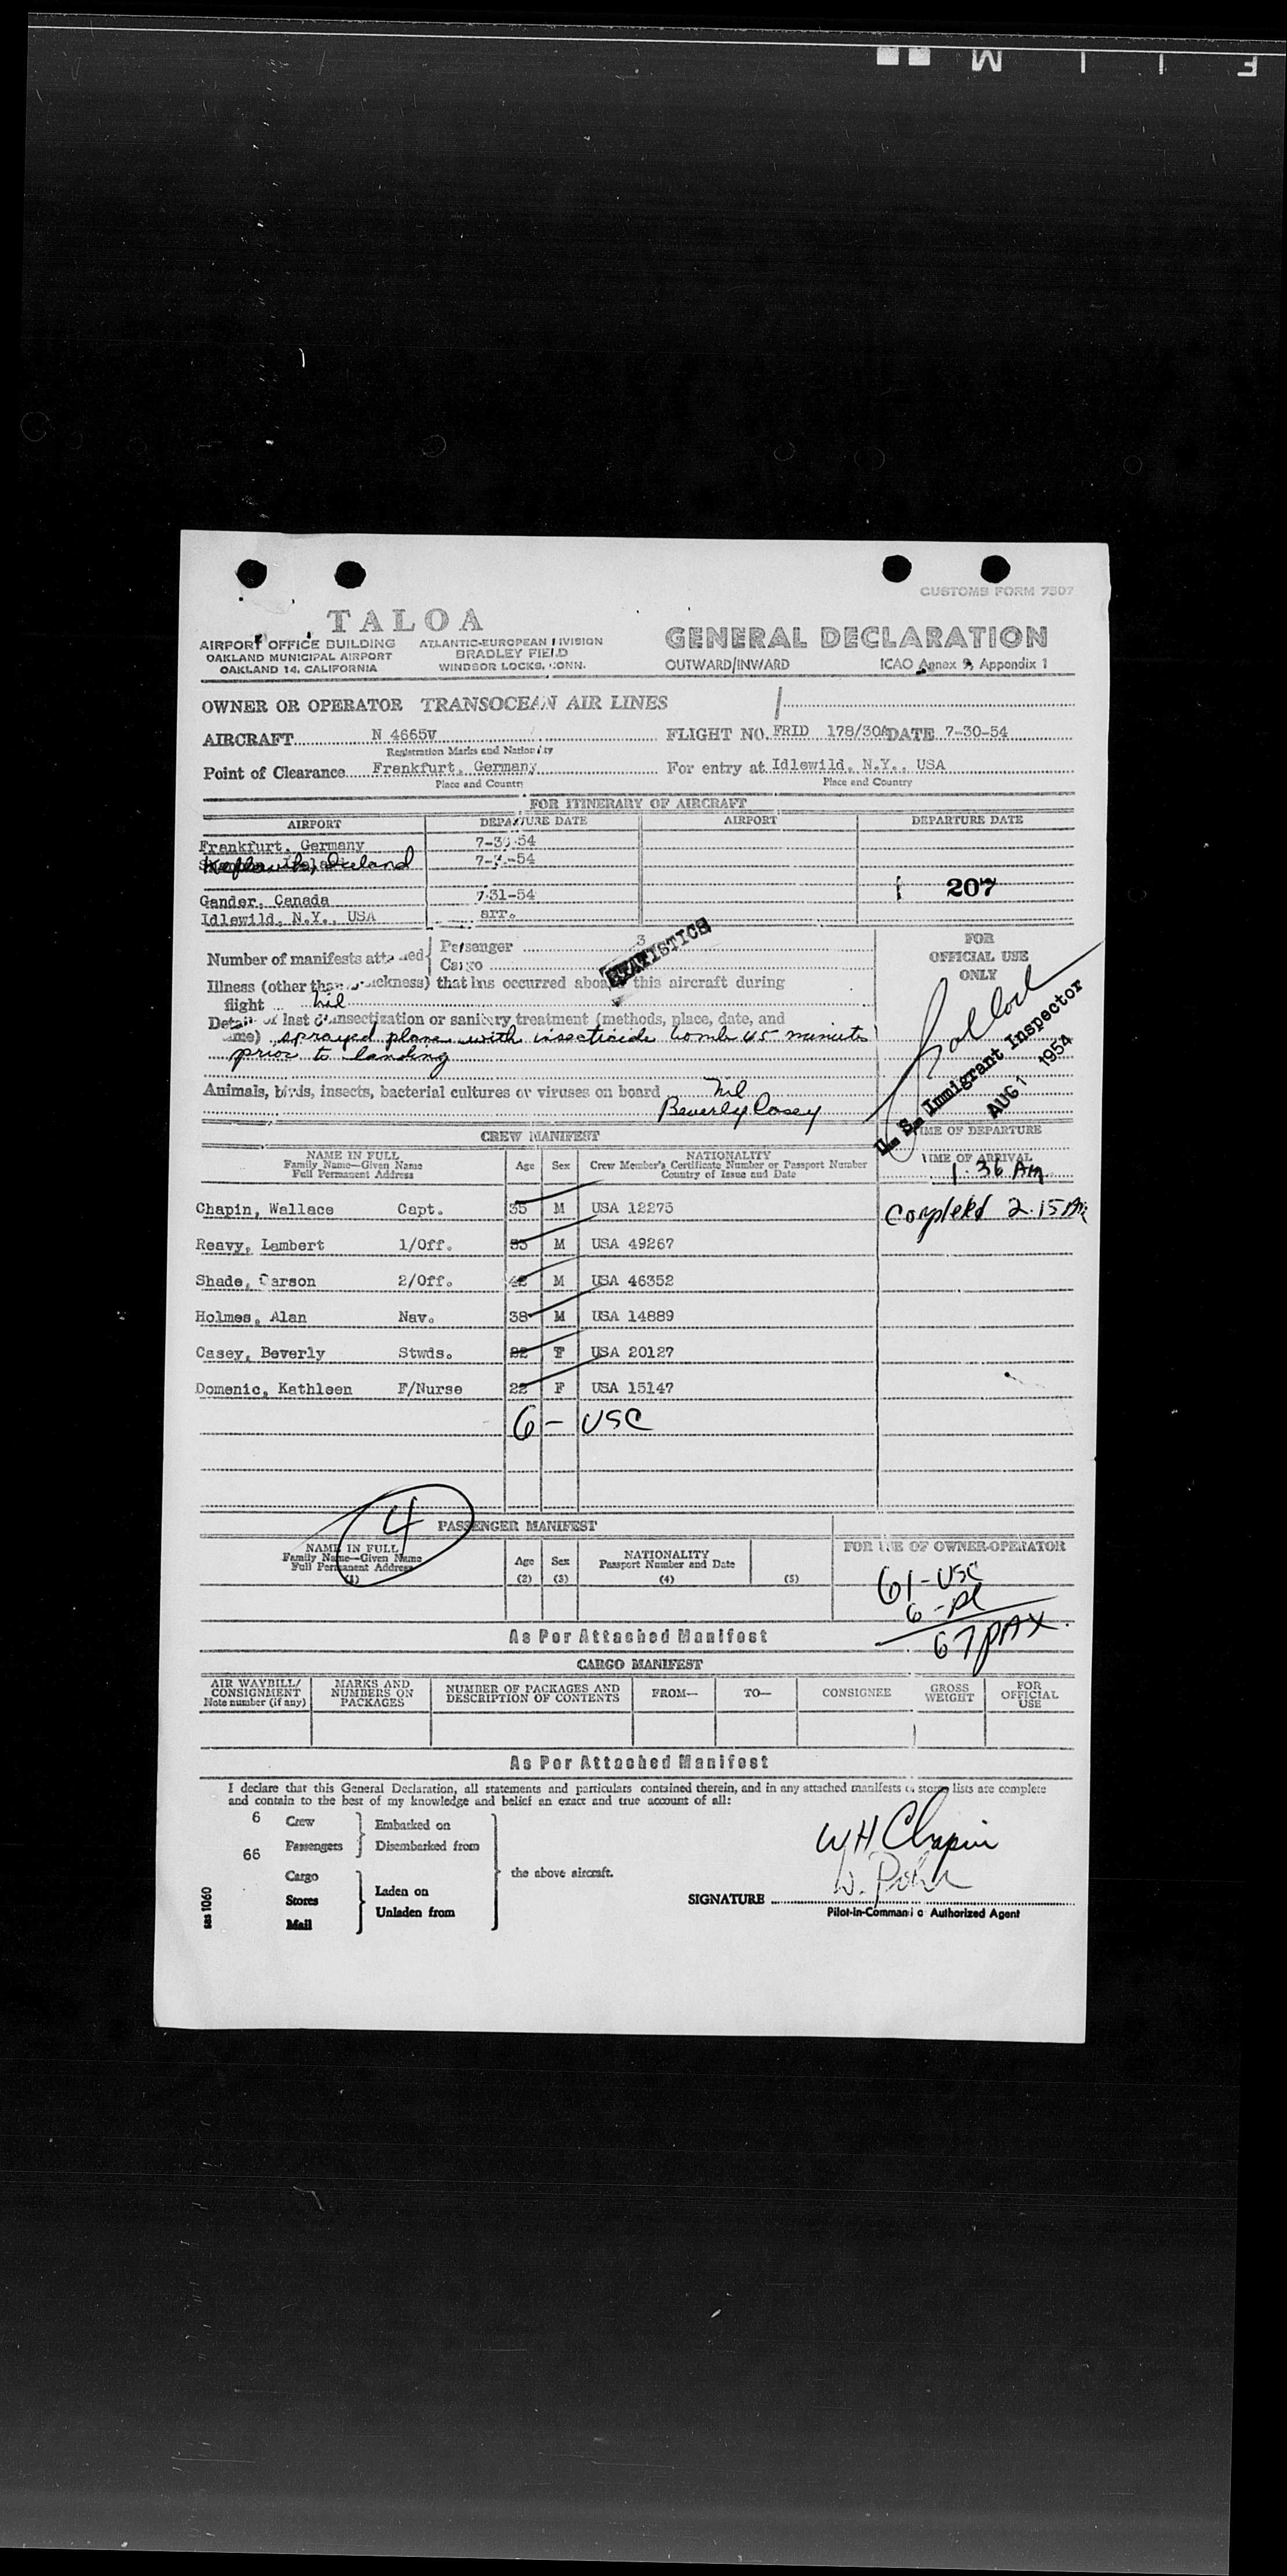 F I L M
CUSTOMS FORM 7507
TALOA
AIRPORT OFFICE BUILDING
OAKLAND MUNICIPAL AIRPORT
OAKLAND 14, CALIFORNIA
ATLANTIC-EUROPEAN DIVISION
BRADLEY FIELD
WINDSOR LOCKS, CONN.
GENERAL DECLARATION
OUTWARD/INWARD ICAO Annex 9, Appendix 1
OWNER OR OPERATOR TRANSOCEAN AIR LINES
AIRCRAFT N 4665V FLIGHT NO. FRID 178/30A DATE 7-30-54
Registration Marks and Nationality
Point of Clearance Frankfurt, Germany For entry at Idlewild, N.Y., USA
Place and Country Place and Country
FOR ITINERARY OF AIRCRAFT
AIRPORT DEPARTURE DATE AIRPORT DEPARTURE DATE
Frankfurt, Germany 7-30-54
Keflavik, Iceland 7- -54
207
Gander, Canada 7-31-54
Idlewild, N.Y., USA arr.
Number of manifests attached Passenger 3
Cargo
STATISTICS
FOR OFFICIAL USE ONLY
Illness (other than airsickness) that has occurred aboard this aircraft during
flight nil
Details of last disinsectization or sanitary treatment (methods, place, date, and
time) sprayed plane with insecticide bomb 45 minutes
prior to landing
Animals, birds, insects, bacterial cultures or viruses on board nil
Beverly Casey
U. S. Immigrant Inspector
AUG 1 1954
CREW MANIFEST
TIME OF DEPARTURE
NAME IN FULL
Family Name—Given Name
Full Permanent Address
Age Sex
NATIONALITY
Crew Member's Certificate Number or Passport Number
Country of Issue and Date
TIME OF ARRIVAL
1:36 AM
Chapin, Wallace Capt. 35 M USA 12275
Completed 2.15 AM
Reavy, Lambert 1/Off. 33 M USA 49267
Shade, Carson 2/Off. 42 M USA 46352
Holmes, Alan Nav. 38 M USA 14889
Casey, Beverly Stwds. 22 F USA 20127
Domenic, Kathleen F/Nurse 22 F USA 15147
6 - USC
4
PASSENGER MANIFEST
NAME IN FULL
Family Name—Given Name
Full Permanent Address
(1)
Age
(2)
Sex
(3)
NATIONALITY
Passport Number and Date
(4)
(5)
FOR USE OF OWNER-OPERATOR
61 - USC
6 -
67 PAX.
As Per Attached Manifest
CARGO MANIFEST
AIR WAYBILL/
CONSIGNMENT
Note number (if any)
MARKS AND
NUMBERS ON
PACKAGES
NUMBER OF PACKAGES AND
DESCRIPTION OF CONTENTS
FROM— TO— CONSIGNEE
GROSS
WEIGHT
FOR
OFFICIAL
USE
As Per Attached Manifest
I declare that this General Declaration, all statements and particulars contained therein, and in any attached manifests or stores lists are complete
and contain to the best of my knowledge and belief an exact and true account of all:
6 Crew Embarked on
66 Passengers Disembarked from
Cargo
Stores Laden on
Mail Unladen from
the above aircraft.
WH Chapin
SIGNATURE
Pilot-in-Command o Authorized Agent
sas 1060